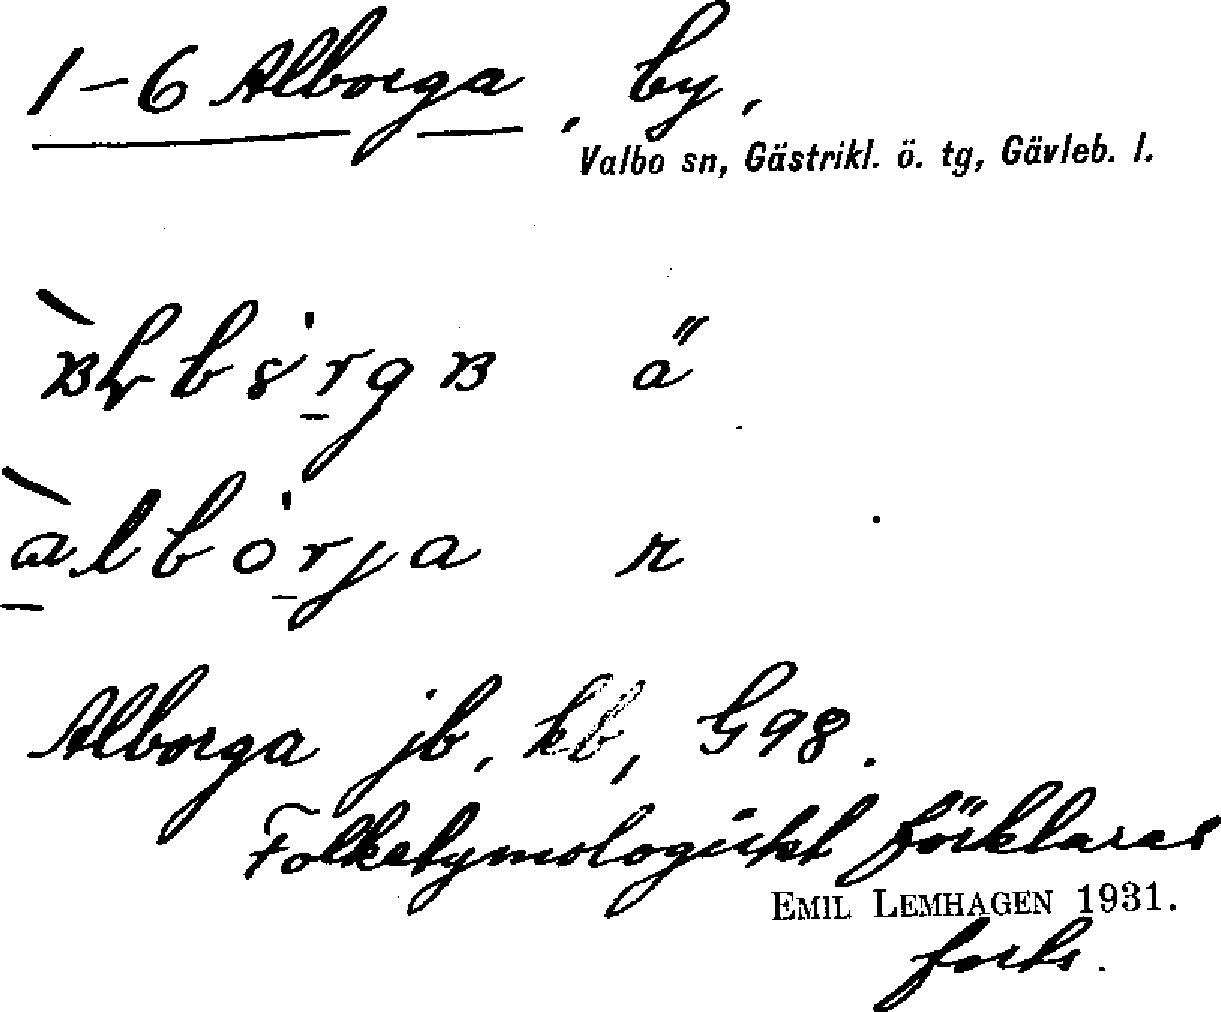 1-6 Alborga, by,
Valbo sn, Gästrikl. ö. tg, Gävleb. l.
ä
àlbórja r
Alborga jb, kb, G98.
Folketymologiskt förklaras
EMIL LEMHAGEN 1931.
forts.